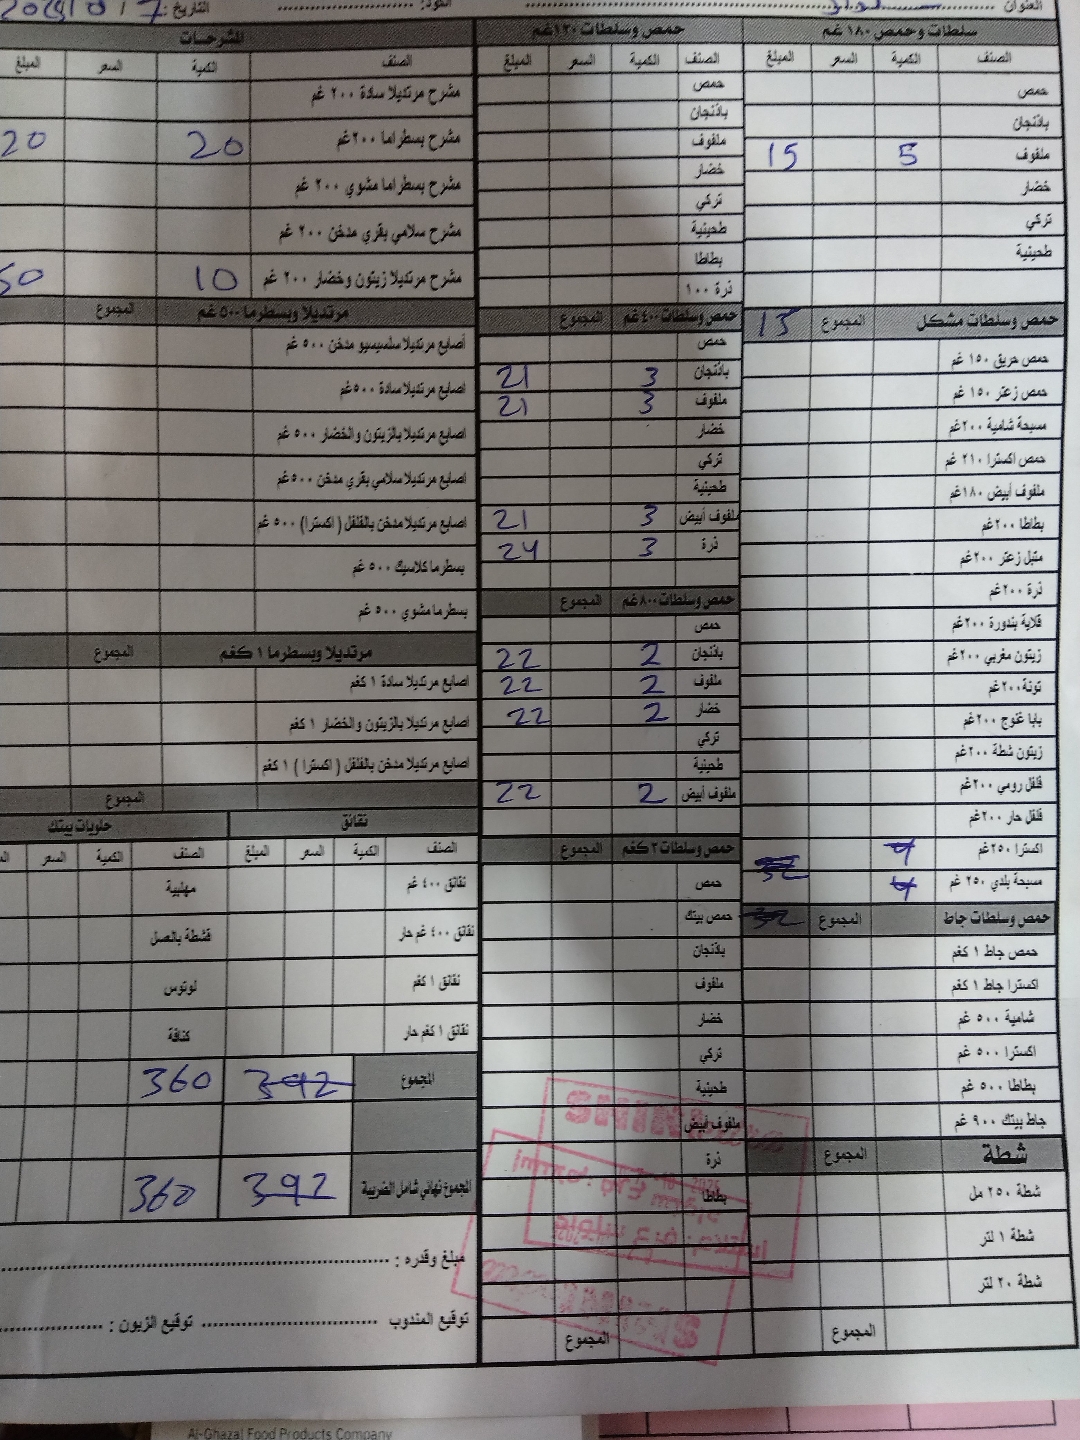 العنوان
التاريخ :
سلطات وحمص ١٨٠ غم
الصنف الكمية السعر المبلغ
حمص
باذنجان
ملفوف 5 15
خضار
تركي
طحينية
حمص وسلطات مشكل المجموع 15
حمص حريق ١٥٠ غم
حمص زعتر ١٥٠ غم
مسبحة شامية ٢٠٠غم
حمص اكسترا ٢١٠ غم
ملفوف أبيض ١٨٠غم
بطاطا ٢٠٠غم
متبل زعتر ٢٠٠غم
ذرة ٢٠٠غم
قلاية بندورة ٢٠٠غم
زيتون مغربي ٢٠٠غم
تونة٢٠٠غم
بابا غنوج ٢٠٠غم
زيتون شطة ٢٠٠غم
فلفل رومي ٢٠٠غم
فلفل حار ٢٠٠غم
اكسترا ٢٥٠غم 4
مسبحة بلدي ٢٥٠ غم 4 32
حمص وسلطات جاط المجموع 32
حمص جاط ١ كغم
اكسترا جاط ١ كغم
شامية ٥٠٠ غم
اكسترا ٥٠٠ غم
بطاطا ٥٠٠ غم
جاط بيتك ٩٠٠ غم
شطة المجموع
شطة ٢٥٠ مل
شطة ١ لتر
شطة ٢٠ لتر
المجموع
حمص وسلطات ١٢٠غم
الصنف الكمية السعر المبلغ
حمص
باذنجان
ملفوف
خضار
تركي
طحينية
بطاطا
ذرة ١٠٠
حمص وسلطات ٤٠٠ غم المجموع
حمص
باذنجان 3 21
ملفوف 3 21
خضار
تركي
طحينية
ملفوف أبيض 3 21
ذرة 3 24
حمص وسلطات ٨٠٠ غم المجموع
حمص
باذنجان 2 22
ملفوف 2 22
خضار 2 22
تركي
طحينية
ملفوف أبيض 2 22
حمص وسلطات ٢ كغم المجموع
حمص
حمص بيتك
باذنجان
ملفوف
خضار
تركي
طحينية
ملفوف أبيض
ذرة
بطاطا
المجموع
المشرحات
الصنف الكمية السعر المبلغ
مشرح مرتديلا سادة ٢٠٠ غم
مشرح بسطراما ٢٠٠غم 20 20
مشرح بسطراما مشوي ٢٠٠ غم
مشرح سلامي بقري مدخن ٢٠٠ غم
مشرح مرتديلا زيتون وخضار ٢٠٠ غم 10 50
مرتديلا وبسطرما ٥٠٠ غم المجموع
أصابع مرتديلا سلسيسيو مدخن ٥٠٠ غم
اصابع مرتديلا سادة ٥٠٠غم
اصابع مرتديلا بالزيتون والخضار ٥٠٠ غم
اصابع مرتديلا سلامي بقري مدخن ٥٠٠غم
اصابع مرتديلا مدخن بالفلفل ( اكسترا ) ٥٠٠ غم
بسطرما كلاسيك ٥٠٠ غم
بسطرما مشوي ٥٠٠ غم
مرتديلا وبسطرما ١ كغم المجموع
اصابع مرتديلا سادة ١ كغم
اصابع مرتديلا بالزيتون والخضار ١ كغم
اصابع مرتديلا مدخن بالفلفل ( اكسترا ) ١ كغم
المجموع
نقانق حلويات بيتك
الصنف الكمية السعر المبلغ الصنف الكمية السعر
نقانق ٤٠٠ غم مهلبية
نقانق ٤٠٠ غم حار قشطة بالعسل
نقانق ١ كغم لوتوس
نقانق ١ كغم حار كنافة
المجموع 392 360
المجموع نهائي شامل الضريبة 392 360
مبلغ وقدره :
توقيع المندوب توقيع الزبون :
Al-Ghazal Food Products Company